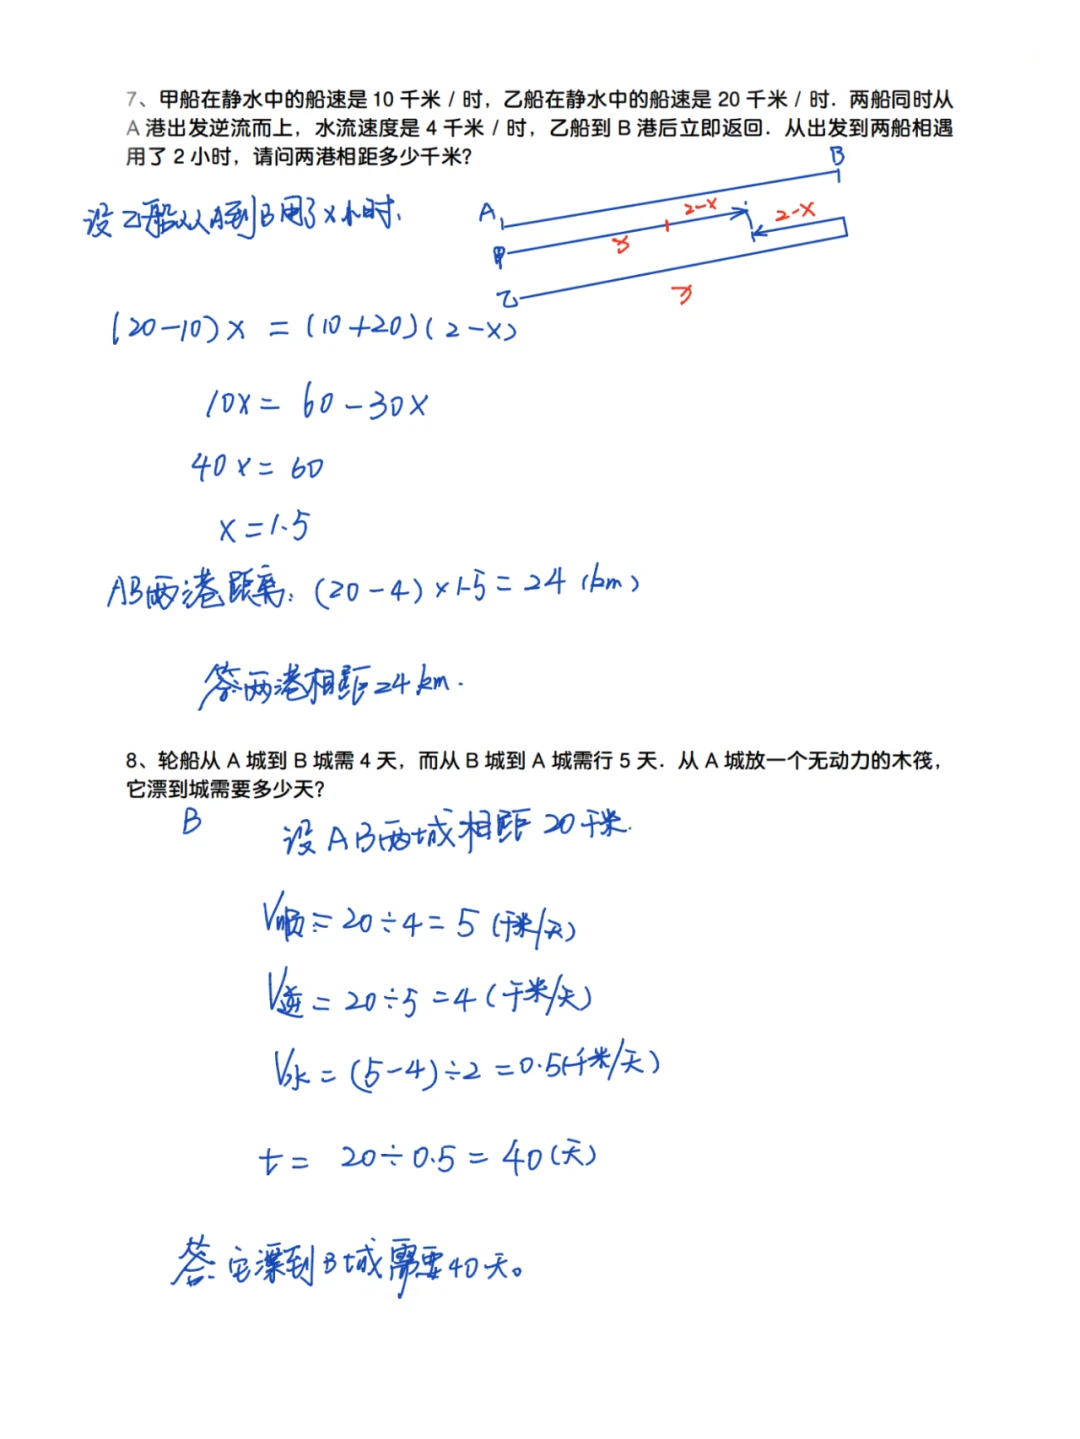 7、甲船在静水中的船速是 10 千米 / 时，乙船在静水中的船速是 20 千米 / 时．两船同时从
A 港出发逆流而上，水流速度是 4 千米 / 时，乙船到 B 港后立即返回．从出发到两船相遇
用了 2 小时，请问两港相距多少千米？
设乙船从A到B用了x小时.
B
A
2-x
2-x
甲
x
乙
x
(20-10)x = (10+20)(2-x)
10x = 60-30x
40x = 60
x = 1.5
AB两港距离: (20-4)×1.5=24 (km)
答:两港相距24km.
8、轮船从 A 城到 B 城需 4 天，而从 B 城到 A 城需行 5 天．从 A 城放一个无动力的木筏，
它漂到城需要多少天？
B
设AB两城相距20千米.
V顺=20÷4=5 (千米/天)
V逆=20÷5=4 (千米/天)
V水=(5-4)÷2=0.5(千米/天)
t= 20÷0.5=40(天)
答:它漂到B城需要40天。